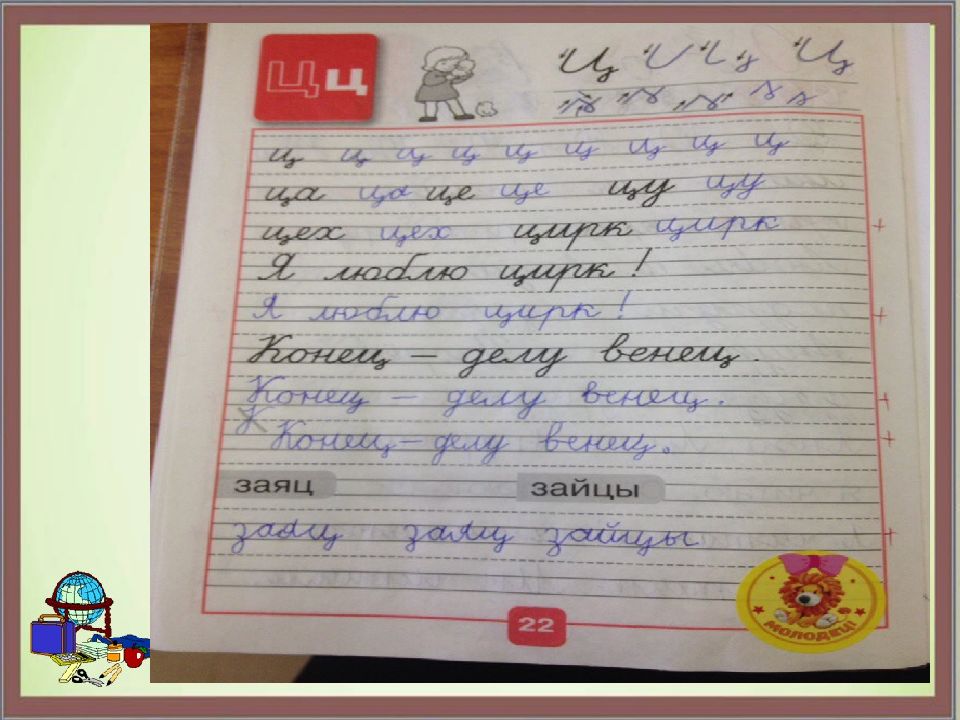 Ц ц
Ц Ц
ц ц ц ц ц ц ц ц ц
ца ца це це цу цу
цех цех цирк цирк
Я люблю цирк!
Я люблю цирк!
Конец – делу венец.
Конец – делу венец.
К
Конец – делу венец.
заяц зайцы
заяц заяц зайцы
22
МОЛОДЕЦ!